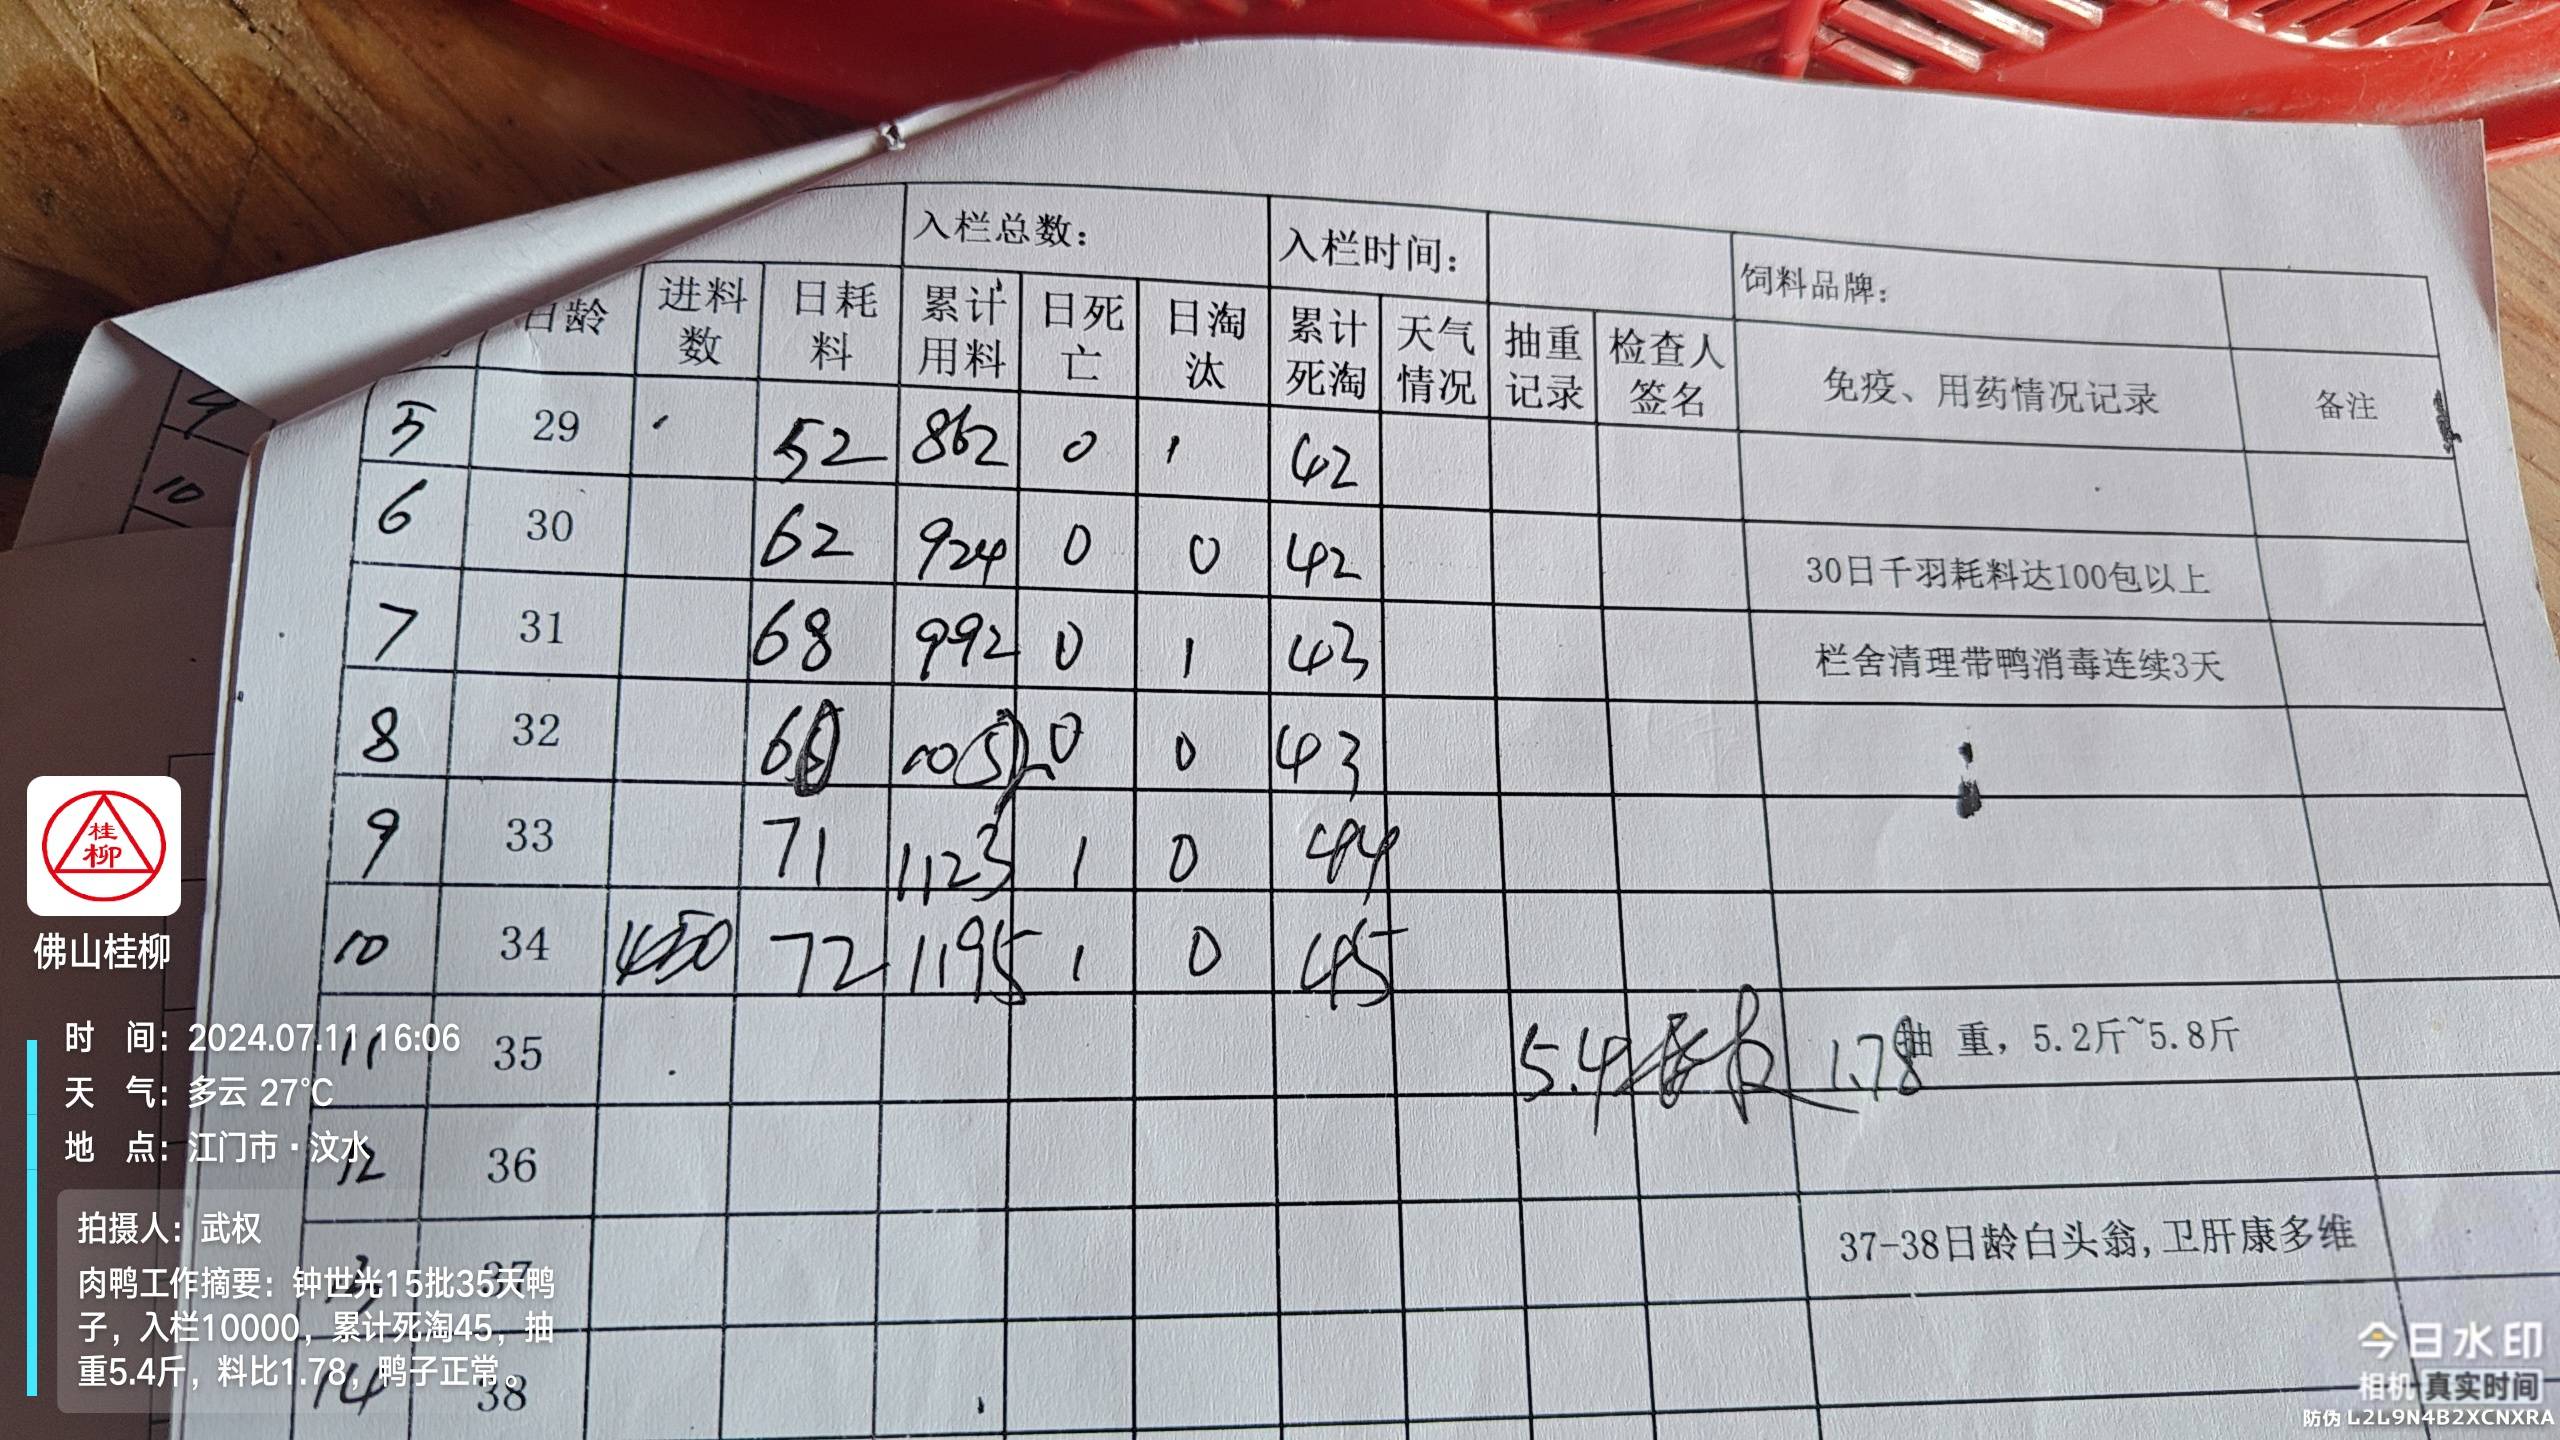 入栏总数： 入栏时间： 饲料品牌：
日龄 进料数 日耗料 累计用料 日死亡 日淘汰 累计死淘 天气情况 抽重记录 检查人签名 免疫、用药情况记录 备注
9
10
5 29 52 862 0 1 42
6 30 62 924 0 0 42 30日千羽耗料达100包以上
7 31 68 992 0 1 43 栏舍清理带鸭消毒连续3天
8 32 0 0 43
9 33 71 1123 1 0 44
10 34 450 72 1195 1 0 45
11 35 5.4 1.78 抽 重，5.2斤~5.8斤
12 36
13 37 37-38日龄白头翁,卫肝康多维
14 38
桂柳
佛山桂柳
时 间：2024.07.11 16:06
天 气：多云 27℃
地 点：江门市·汶水
拍摄人：武权
肉鸭工作摘要：钟世光15批35天鸭
子，入栏10000，累计死淘45，抽
重5.4斤，料比1.78，鸭子正常。
今日水印
相机 真实时间
防伪 L2L9N4B2XCNXRA